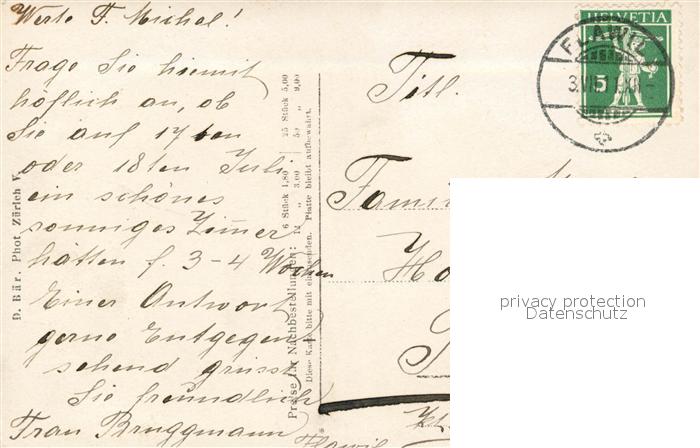 Werte F. Michel!
Frage Sie hiemit
höflich an, ob
Sie auf 17ten
oder 18ten Juli
ein schönes
sonniges Zimmer
hätten f. 3-4 Wochen
Einer Antwort
gerne Entgegen-
sehend grüsst
Sie freundlich
Frau Bruggmann
Flawil
D. Bär. Phot. Zürich V.
Preise für Nachbestellungen: 6 Stück 1,80 25 Stück 5,00
12 „ 3,00 50 „ 9,00
Diese Karte bitte mit einsenden. Platte bleibt aufbewahrt.
HELVETIA
5
FLAWIL
Titl.
privacy protection
Datenschutz